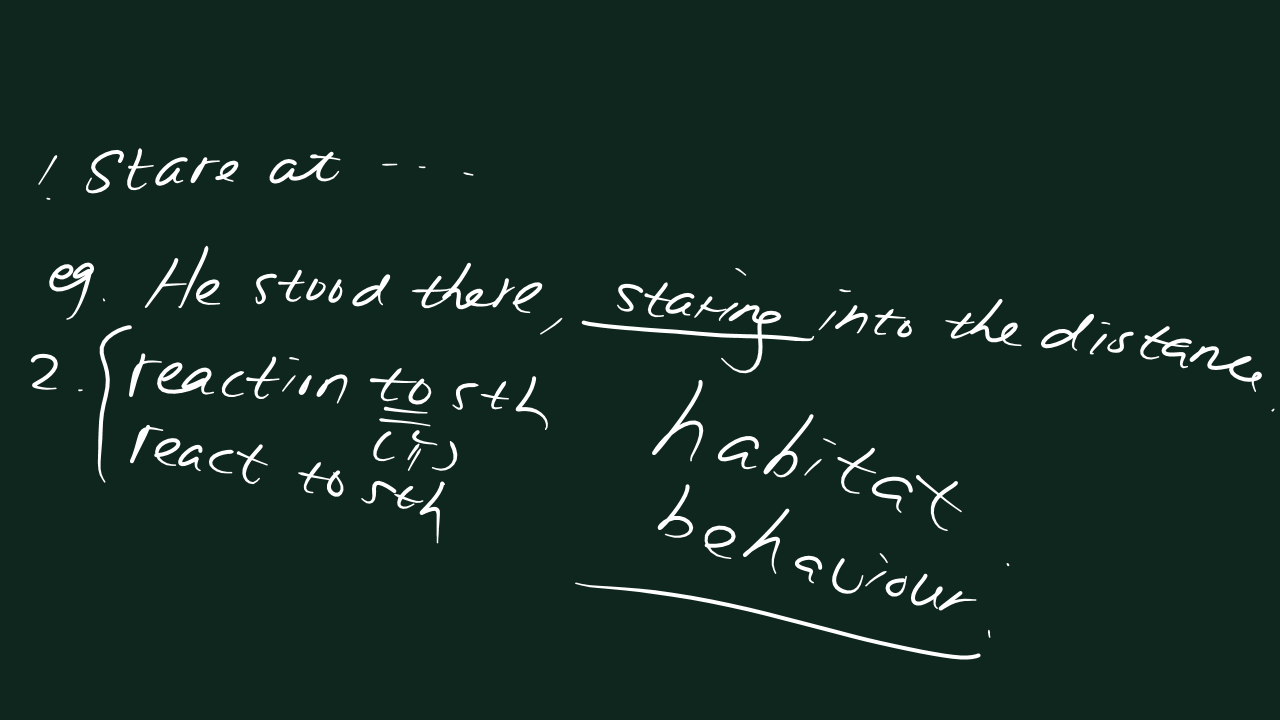 1. Stare at ---
eg. He stood there, staring into the distance.
2. reaction to sth
(介)
react to sth
habitat
behaviour.